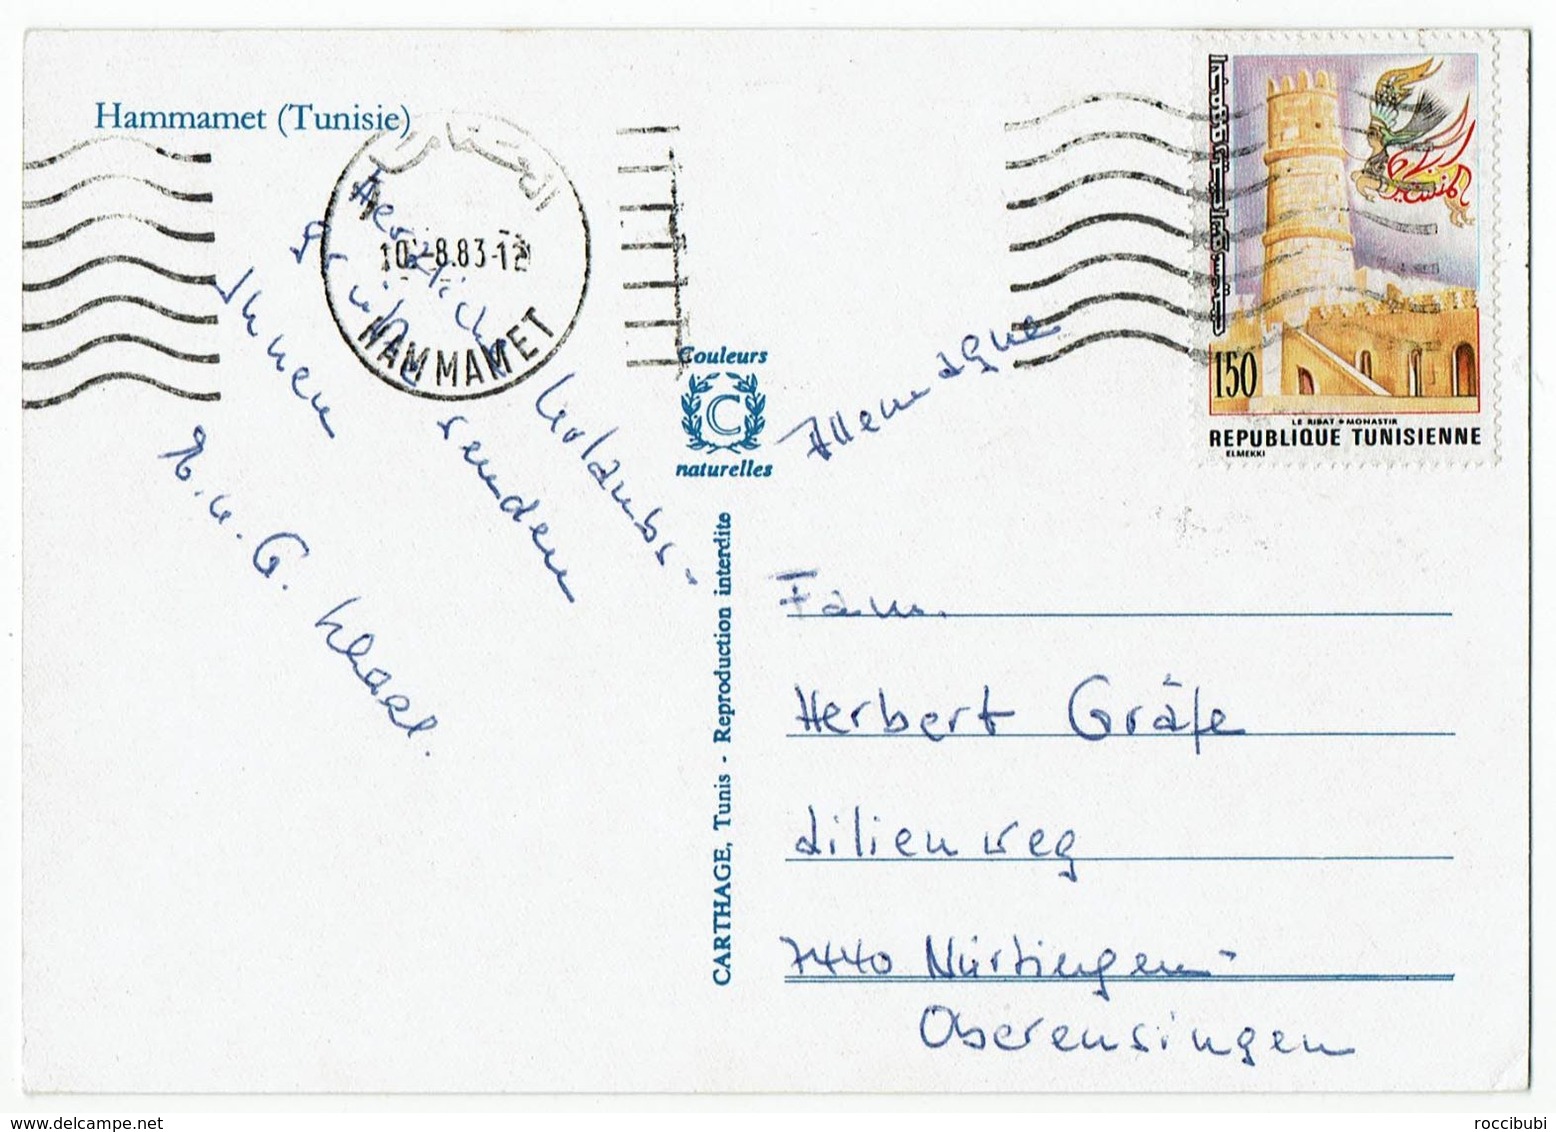 Hammamet (Tunisie)
الحمامات
10.-8.83-12
HAMMAMET
Herzliche Urlaubs-
grüße senden
Ihnen
R. u. G.
Couleurs
C
naturelles
CARTHAGE, Tunis - Reproduction interdite
Allemagne
150
LE RIBAT * MONASTIR
REPUBLIQUE TUNISIENNE
ELMEKKI
Fam.
Herbert Gräfe
Lilienweg
7440 Nürtingen-
Oberensingen
www.delcampe.net
roccibubi